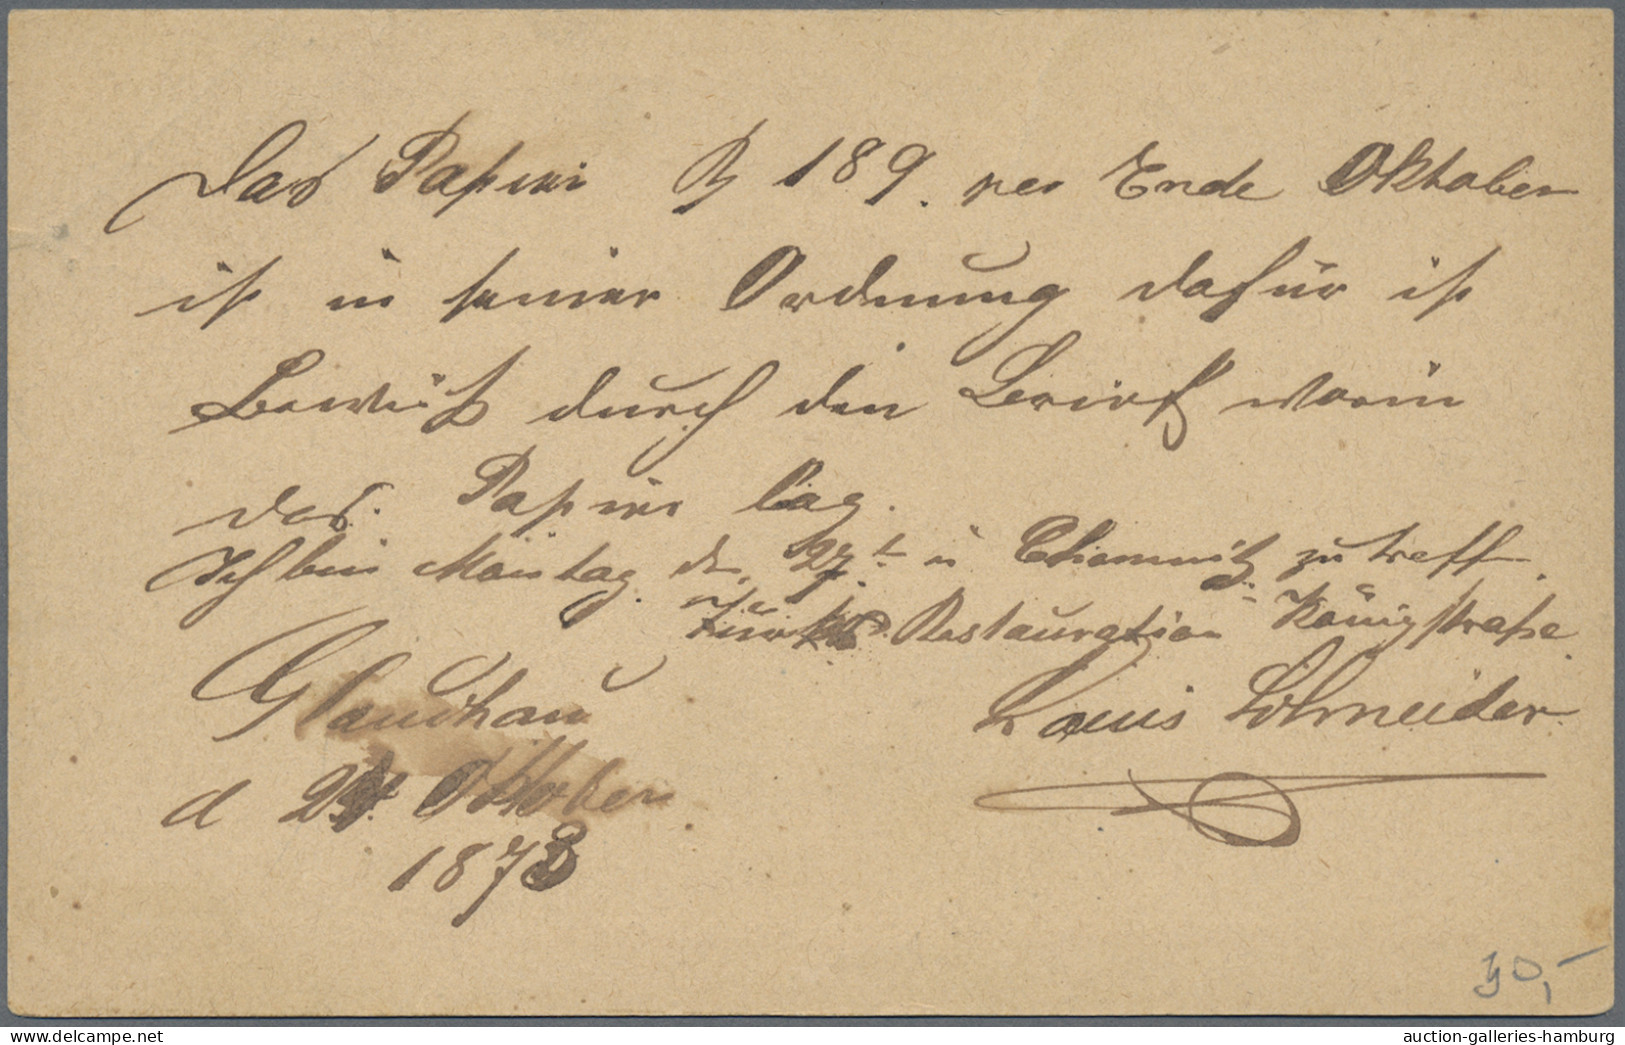 Das Papier ℔ 189. per Ende Oktober
ist in seiner Ordnung dafür ist
Beweiß durch den Brief worin
das Papier lag.
Ich bin Montag d. 27t in Chemnitz zu treff.
Restauration Königstraße
Glauchau
Louis Schneider
d 24t Oktober
1873
30,-
auction-galleries-hamburg